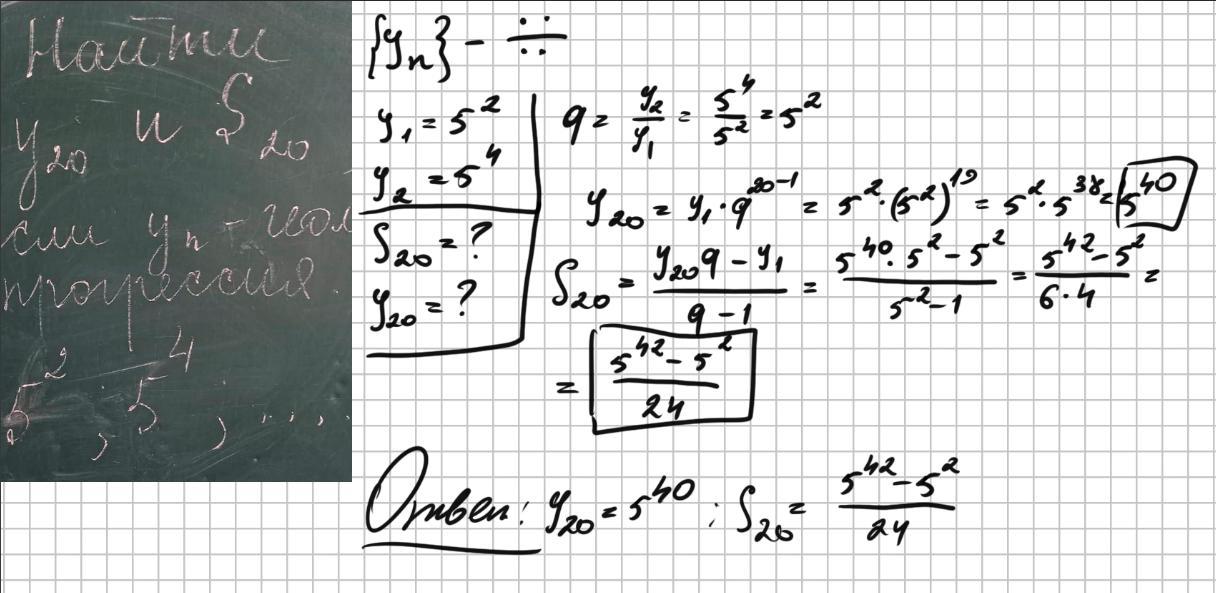 Найти
y₂₀ и S₂₀
если yₙ - геом
прогрессия.
5² ; 5⁴ ; ....
{yₙ} - ∺
y₁ = 5²
y₂ = 5⁴
S₂₀ = ?
y₂₀ = ?
q = y₂/y₁ = 5⁴/5² = 5²
y₂₀ = y₁ · q²⁰⁻¹ = 5² · (5²)¹⁹ = 5² · 5³⁸ = 5⁴⁰
S₂₀ = (y₂₀q - y₁)/(q - 1) = (5⁴⁰ · 5² - 5²)/(5² - 1) = (5⁴² - 5²)/(6 · 4) =
= (5⁴² - 5²)/24
Ответ: y₂₀ = 5⁴⁰ ; S₂₀ = (5⁴² - 5²)/24